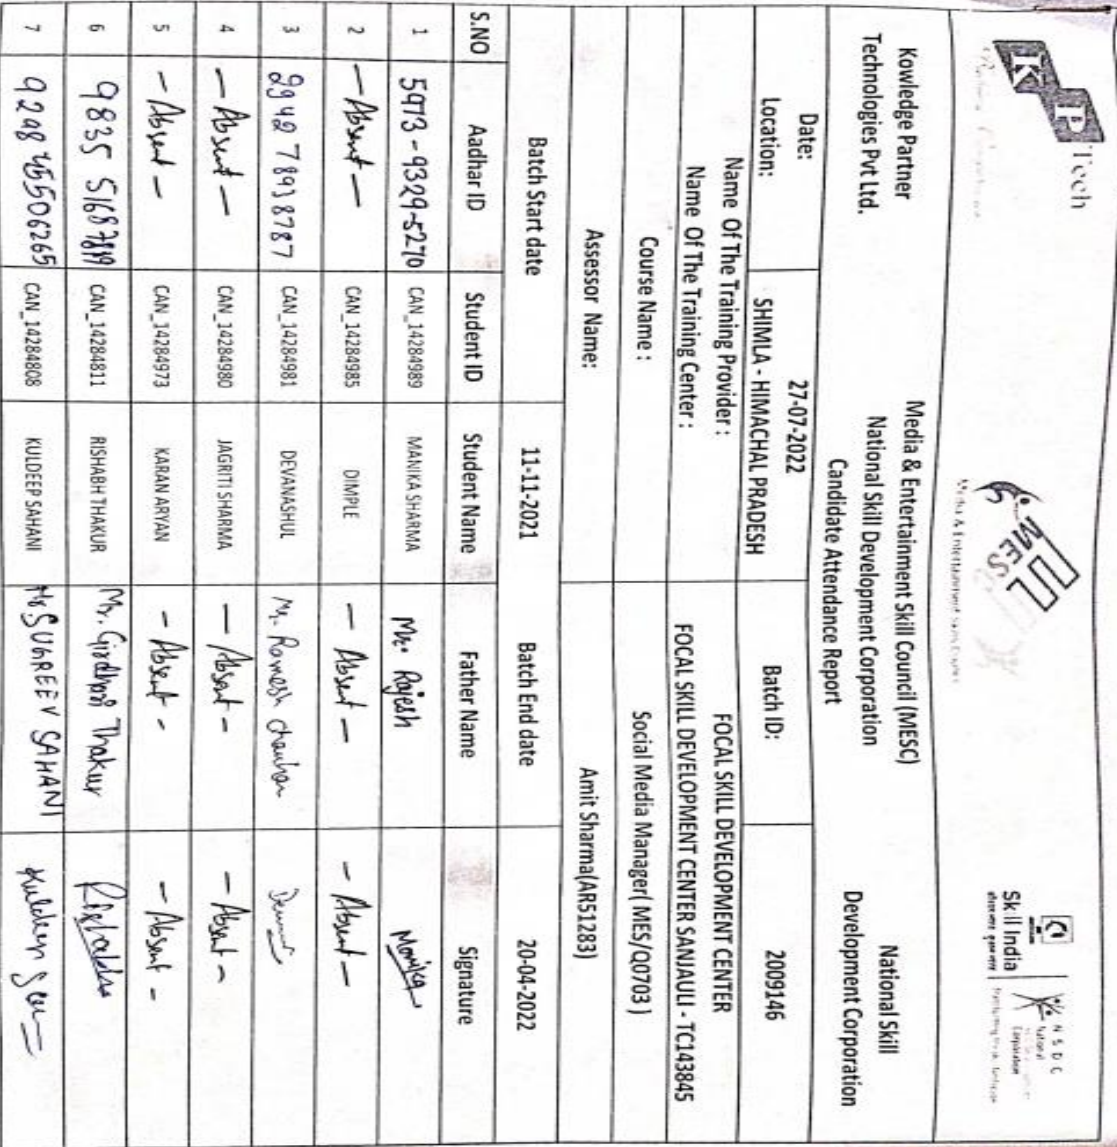 KP Tech
MES
Media & Entertainment Skills Council
Skill India
N S D C
National
Corporation
Kowledge Partner
Technologies Pvt Ltd.
Media & Entertainment Skill Council (MESC)
National Skill Development Corporation
Candidate Attendance Report
National Skill
Development Corporation
Date: 27-07-2022 Batch ID: 2009146
Location: SHIMLA - HIMACHAL PRADESH
Name Of The Training Provider : FOCAL SKILL DEVELOPMENT CENTER
Name Of The Training Center : FOCAL SKILL DEVELOPMENT CENTER SANJAULI - TC143845
Course Name : Social Media Manager( MES/Q0703 )
Assessor Name: Amit Sharma(AR51283)
Batch Start date 11-11-2021 Batch End date 20-04-2022
S.NO Aadhar ID Student ID Student Name Father Name Signature
1 5973-9329-5270 CAN_14284989 MANIKA SHARMA Mr. Rajesh Manika
2 - Absent - CAN_14284985 DIMPLE - Absent - - Absent -
3 2942 7893 8787 CAN_14284981 DEVANASHUL Mr. Ramesh chauhan
4 - Absent - CAN_14284980 JAGRITI SHARMA - Absent - - Absent -
5 - Absent - CAN_14284973 KARAN ARYAN - Absent - - Absent -
6 9835 5168 CAN_14284811 RISHABH THAKUR Mr. Girdhar Thakur
7 9248 CAN_14284808 KULDEEP SAHANI Mr SUGREEV SAHANI Kuldeep